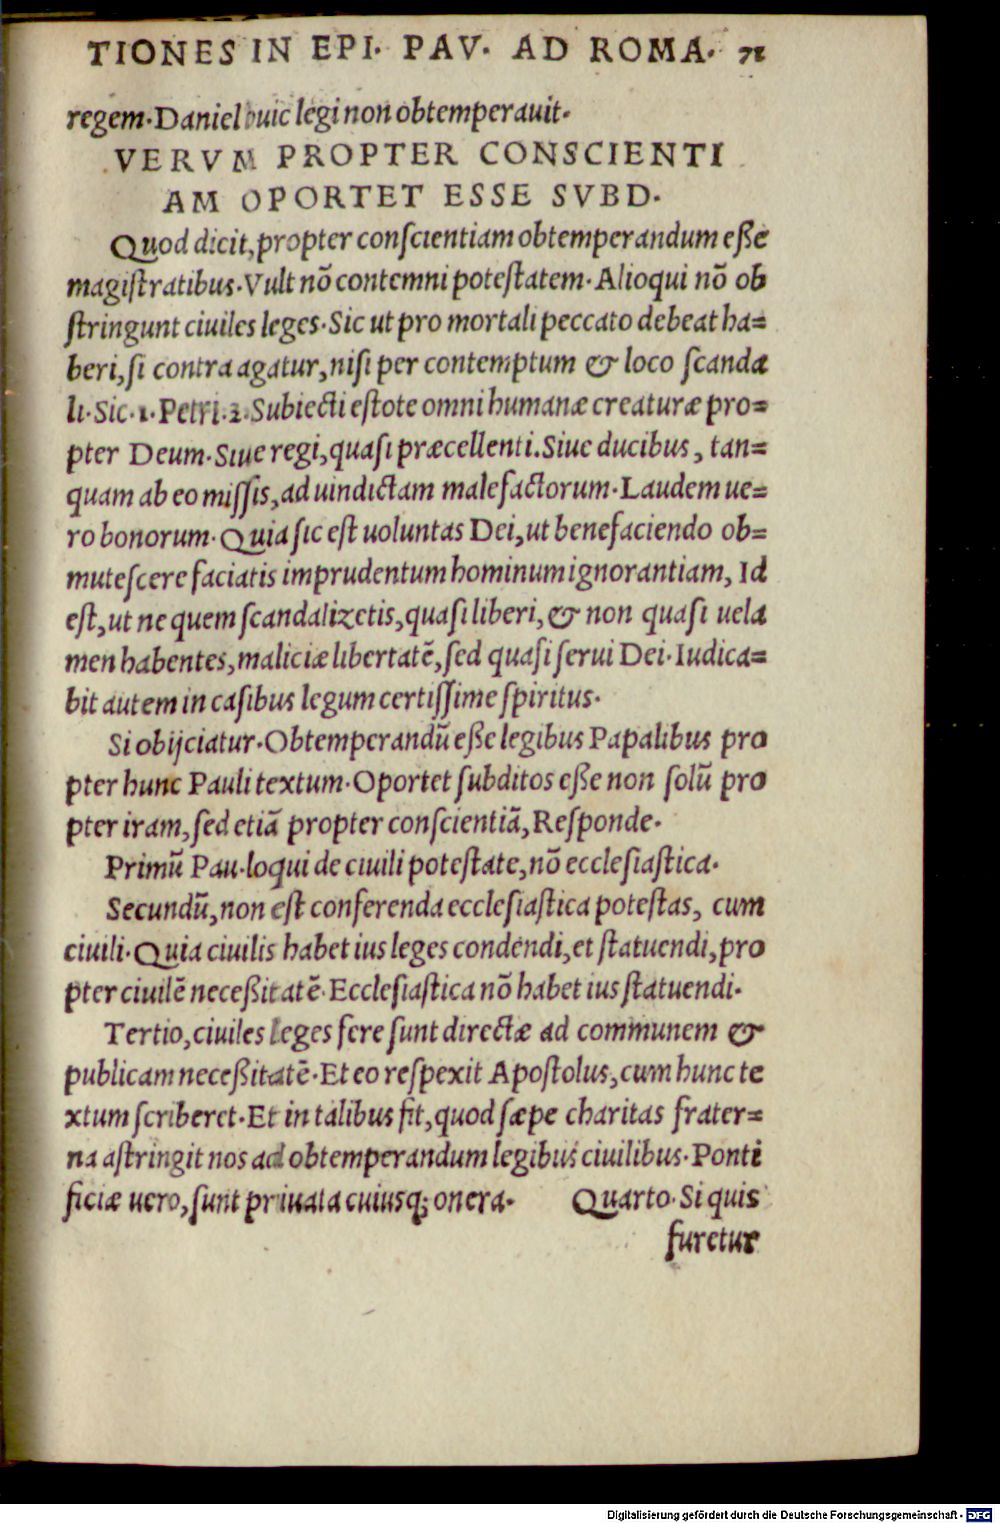 TIONES IN EPI. PAV. AD ROMA. 71
regem. Daniel huic legi non obtemperauit.
VERVM PROPTER CONSCIENTI
AM OPORTET ESSE SVBD.
Quod dicit, propter conſcientiam obtemperandum eße
magiſtratibus. Vult nõ contemni poteſtatem. Alioqui nõ ob
ſtringunt ciuiles leges. Sic ut pro mortali peccato debeat ha=
beri, ſi contra agatur, niſi per contemptum & loco ſcanda
li. Sic. 1. Petri. 2. Subiecti eſtote omni humanæ creaturæ pro=
pter Deum. Siue regi, quaſi præcellenti. Siue ducibus, tan=
quam ab eo miſſis, ad uindictam malefactorum. Laudem ue=
ro bonorum. Quia ſic eſt uoluntas Dei, ut benefaciendo ob=
muteſcere faciatis imprudentum hominum ignorantiam, Id
eſt, ut ne quem ſcandalizetis, quaſi liberi, & non quaſi uela
men habentes, maliciæ libertatẽ, ſed quaſi ſerui Dei. Iudica=
bit autem in caſibus legum certiſſime ſpiritus.
Si obijciatur. Obtemperandũ eße legibus Papalibus pro
pter hunc Pauli textum. Oportet ſubditos eße non ſolũ pro
pter iram, ſed etiã propter conſcientiã, Reſponde.
Primũ Pau. loqui de ciuili poteſtate, nõ eccleſiaſtica.
Secundũ, non eſt conferenda eccleſiaſtica poteſtas, cum
ciuili. Quia ciuilis habet ius leges condendi, et ſtatuendi, pro
pter ciuilẽ neceßitatẽ. Eccleſiaſtica nõ habet ius ſtatuendi.
Tertio, ciuiles leges fere ſunt directæ ad communem &
publicam neceßitatẽ. Et eo reſpexit Apoſtolus, cum hunc te
xtum ſcriberet. Et in talibus fit, quod ſæpe charitas frater=
na aſtringit nos ad obtemperandum legibus ciuilibus. Ponti
ficiæ uero, ſunt priuata cuiusq; onera. Quarto. Si quis
furetur
Digitalisierung gefördert durch die Deutsche Forschungsgemeinschaft - DFG